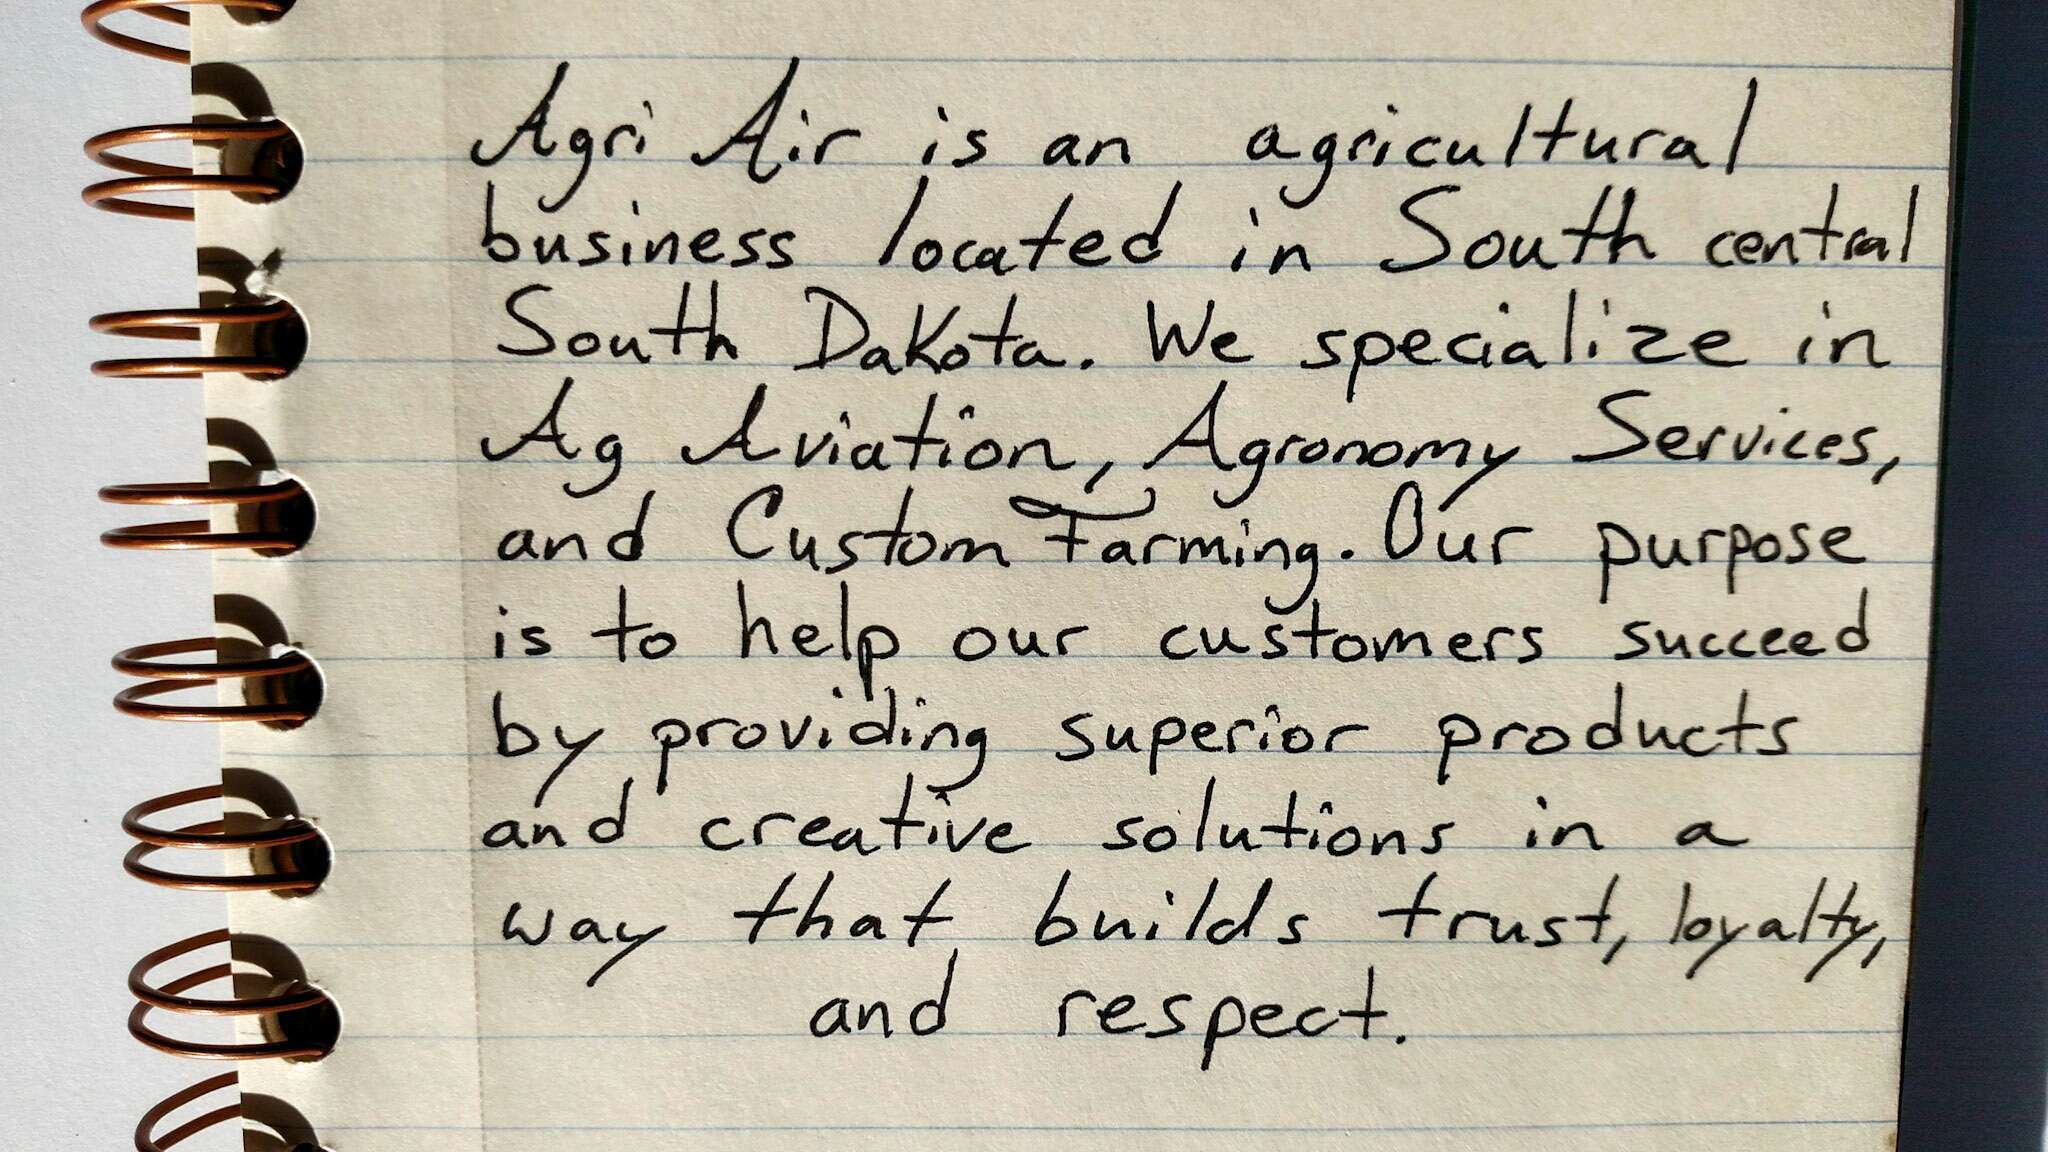 Agri Air is an agricultural
business located in South central
South Dakota. We specialize in
Ag Aviation, Agronomy Services,
and Custom Farming. Our purpose
is to help our customers succeed
by providing superior products
and creative solutions in a
way that builds trust, loyalty,
and respect.